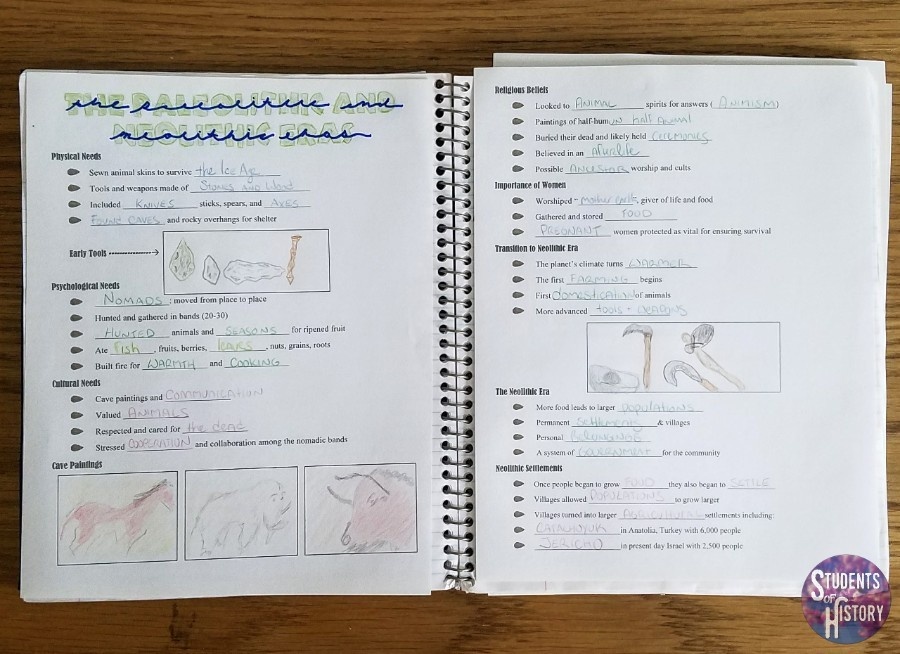 THE PALEOLITHIC AND
NEOLITHIC ERAS
the paleolithic and
neolithic eras
Physical Needs
Sewn animal skins to survive the Ice Age
Tools and weapons made of Stones and Wood
Included KNIVES sticks, spears, and AXES
FOUND CAVES and rocky overhangs for shelter
Early Tools
Psychological Needs
NOMADS; moved from place to place
Hunted and gathered in bands (20-30)
HUNTED animals and SEASONS for ripened fruit
Ate fish, fruits, berries, leaves, nuts, grains, roots
Built fire for WARMTH and COOKING
Cultural Needs
Cave paintings and COMMUNICATION
Valued ANIMALS
Respected and cared for the dead
Stressed COOPERATION and collaboration among the nomadic bands
Cave Paintings
Religious Beliefs
Looked to ANIMAL spirits for answers (ANIMISM)
Paintings of half-human half animal
Buried their dead and likely held ceremonies
Believed in an afterlife
Possible ANCESTOR worship and cults
Importance of Women
Worshiped - mother earth, giver of life and food
Gathered and stored FOOD
PREGNANT women protected as vital for ensuring survival
Transition to Neolithic Era
The planet's climate turns WARMER
The first FARMING begins
First domestication of animals
More advanced tools + WEAPONS
The Neolithic Era
More food leads to larger populations
Permanent Settlements & villages
Personal BELONGINGS
A system of GOVERNMENT for the community
Neolithic Settlements
Once people began to grow FOOD they also began to SETTLE
Villages allowed POPULATIONS to grow larger
Villages turned into larger AGRICULTURAL settlements including:
in Anatolia, Turkey with 6,000 people
JERICHO in present day Israel with 2,500 people
STUDENTS
OF
HISTORY